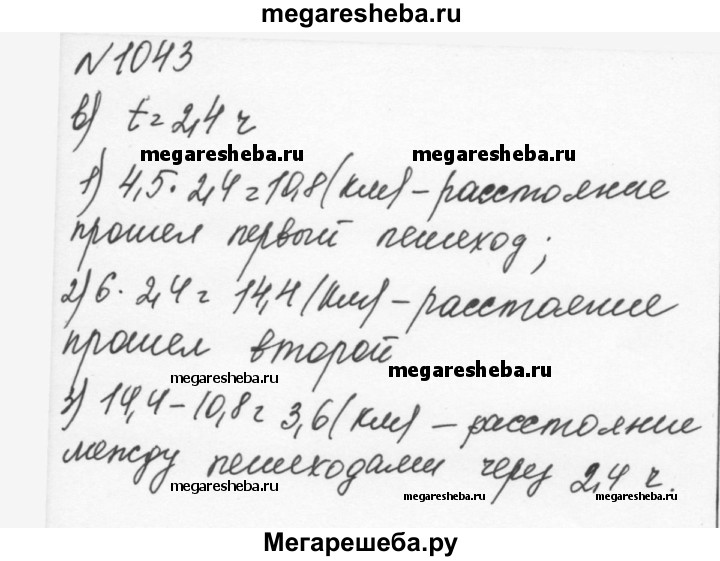 megaresheba.ru
№1043
в) t = 2,4 ч
megaresheba.ru megaresheba.ru
1) 4,5 · 2,4 = 10,8 (км) – расстояние
прошел первый пешеход;
2) 6 · 2,4 = 14,4 (км) – расстояние
прошел второй
megaresheba.ru megaresheba.ru
3) 14,4 – 10,8 = 3,6 (км) – расстояние
между пешеходами через 2,4 ч.
megaresheba.ru megaresheba.ru megaresheba.ru
Мегарешеба.ру